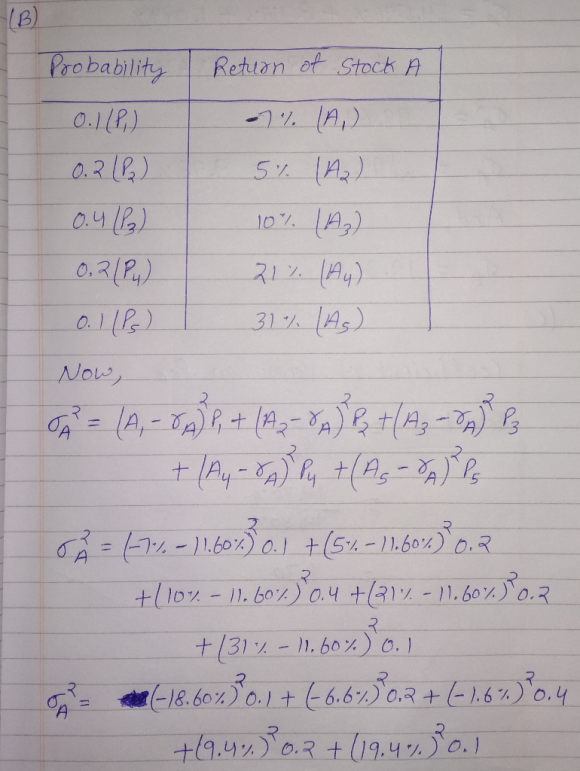 (B)
Probability Return of Stock A
0.1 (P₁) -7% (A₁)
0.2 (P₂) 5% (A₂)
0.4 (P₃) 10% (A₃)
0.2 (P₄) 21% (A₄)
0.1 (P₅) 31% (A₅)
Now,
σ_A² = (A₁ - r_A)² P₁ + (A₂ - r_A)² P₂ + (A₃ - r_A)² P₃
+ (A₄ - r_A)² P₄ + (A₅ - r_A)² P₅
σ_A² = (-7% - 11.60%)² 0.1 + (5% - 11.60%)² 0.2
+ (10% - 11.60%)² 0.4 + (21% - 11.60%)² 0.2
+ (31% - 11.60%)² 0.1
σ_A² = (-18.60%)² 0.1 + (-6.6%)² 0.2 + (-1.6%)² 0.4
+ (9.4%)² 0.2 + (19.4%)² 0.1